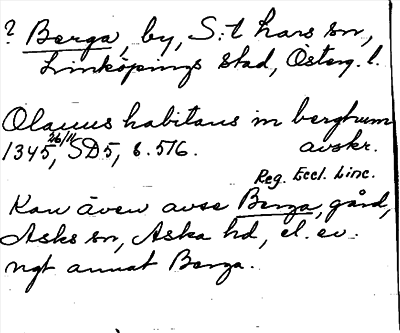 ? Berga, by, S:t Lars sn,
Linköpings stad, Österg. l.
Olauus habitans in berghum
1345 26/11, SD 5, s. 516. avskr.
Reg. Eccl. Linc.
Kan även avse Berga, gård,
Asks sn, Aska hd, el. ev.
ngt annat Berga.